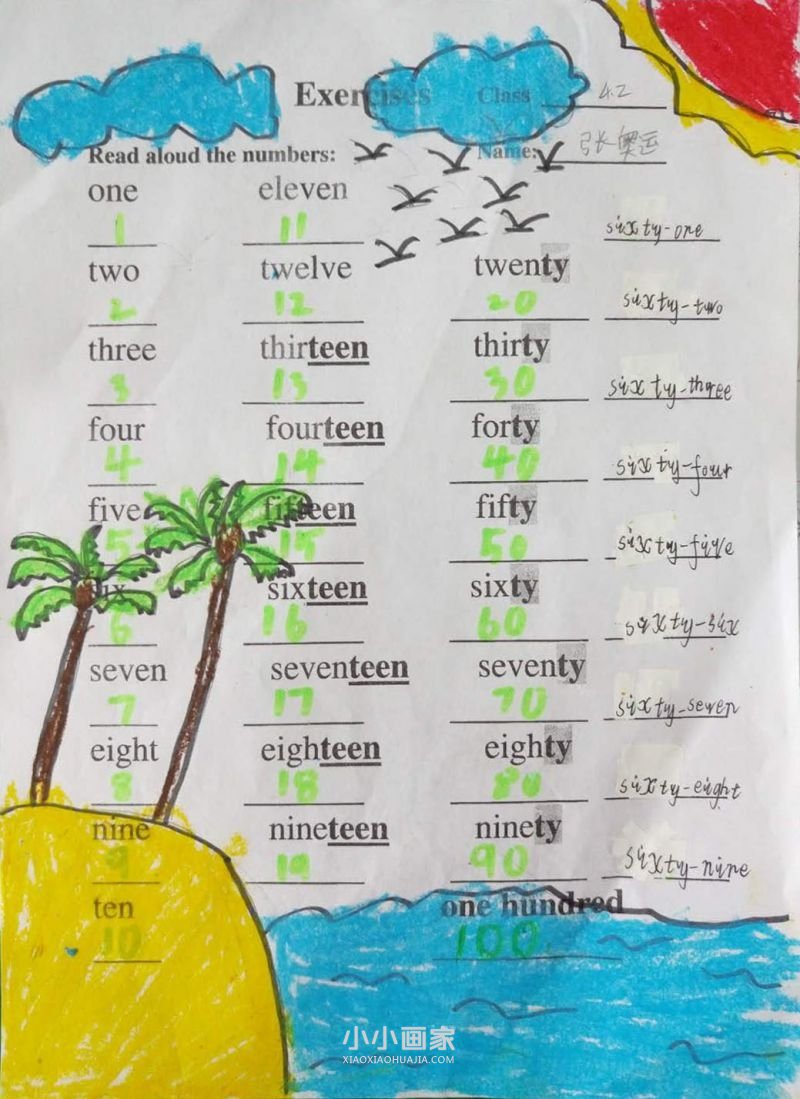 Exercises Class 4.2
Read aloud the numbers: Name: 张奥运
one eleven
1 11 sixty-one
two twelve twenty
2 12 20 sixty-two
three thirteen thirty
3 13 30 sixty-three
four fourteen forty
4 14 40 sixty-four
five fifteen fifty
5 15 50 sixty-five
six sixteen sixty
6 16 60 sixty-six
seven seventeen seventy
7 17 70 sixty-seven
eight eighteen eighty
8 18 80 sixty-eight
nine nineteen ninety
9 19 90 sixty-nine
ten one hundred
10 100
小小画家
XIAOXIAOHUAJIA.COM